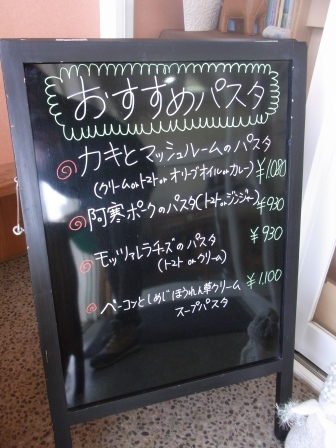 おすすめパスタ
カキとマッシュルームのパスタ
(クリームorトマトorオリーブオイルorカレー) ¥1,080
阿寒ポークのパスタ(トマトorジンジャー) ¥930
モッツァレラチーズのパスタ ¥930
(トマト or クリーム)
ベーコンとしめじほうれん草クリーム ¥1,100
スープパスタ